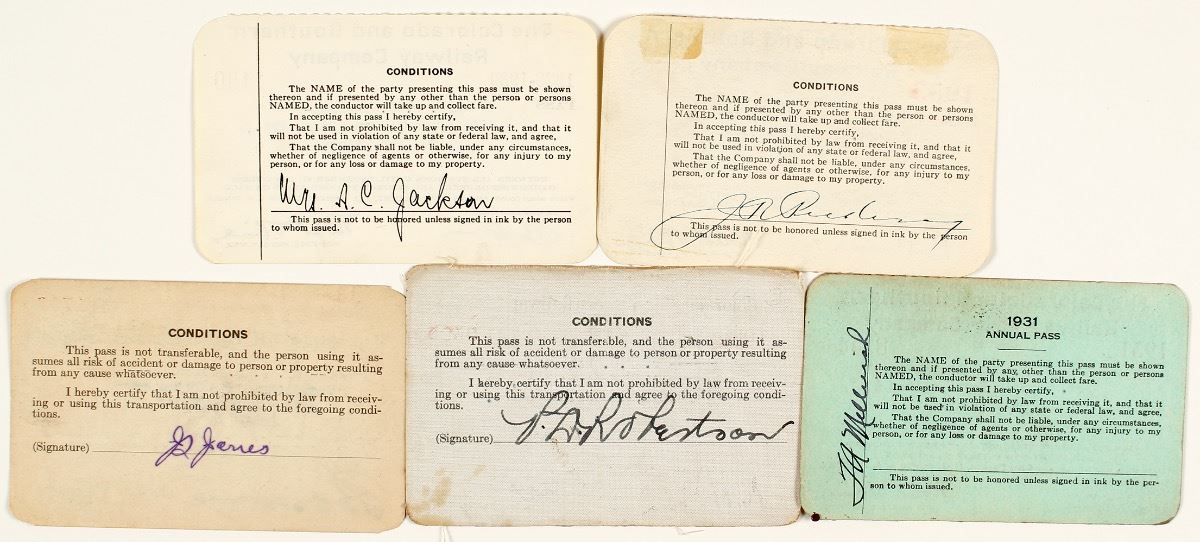 CONDITIONS
The NAME of the party presenting this pass must be shown
thereon and if presented by any other than the person or persons
NAMED, the conductor will take up and collect fare.
In accepting this pass I hereby certify,
That I am not prohibited by law from receiving it, and that it
will not be used in violation of any state or federal law, and agree,
That the Company shall not be liable, under any circumstances,
whether of negligence of agents or otherwise, for any injury to my
person, or for any loss or damage to my property.
Mrs. A. C. Jackson
This pass is not to be honored unless signed in ink by the person
to whom issued.
CONDITIONS
The NAME of the party presenting this pass must be shown
thereon and if presented by any other than the person or persons
NAMED, the conductor will take up and collect fare.
In accepting this pass I hereby certify,
That I am not prohibited by law from receiving it, and that it
will not be used in violation of any state or federal law, and agree,
That the Company shall not be liable, under any circumstances,
whether of negligence of agents or otherwise, for any injury to my
person, or for any loss or damage to my property.
This pass is not to be honored unless signed in ink by the person
to whom issued.
CONDITIONS
This pass is not transferable, and the person using it as-
sumes all risk of accident or damage to person or property resulting
from any cause whatsoever.
I hereby certify that I am not prohibited by law from receiv-
ing or using this transportation and agree to the foregoing condi-
tions.
(Signature)
CONDITIONS
This pass is not transferable, and the person using it as-
sumes all risk of accident or damage to person or property resulting
from any cause whatsoever.
I hereby certify that I am not prohibited by law from receiv-
ing or using this transportation and agree to the foregoing condi-
tions.
(Signature) Robertson
1931
ANNUAL PASS
The NAME of the party presenting this pass must be shown
thereon and if presented by any other than the person or persons
NAMED, the conductor will take up and collect fare.
In accepting this pass I hereby certify,
That I am not prohibited by law from receiving it, and that it
will not be used in violation of any state or federal law, and agree,
That the Company shall not be liable, under any circumstances,
whether of negligence of agents or otherwise, for any injury to my
person, or for any loss or damage to my property.
This pass is not to be honored unless signed in ink by the per-
son to whom issued.